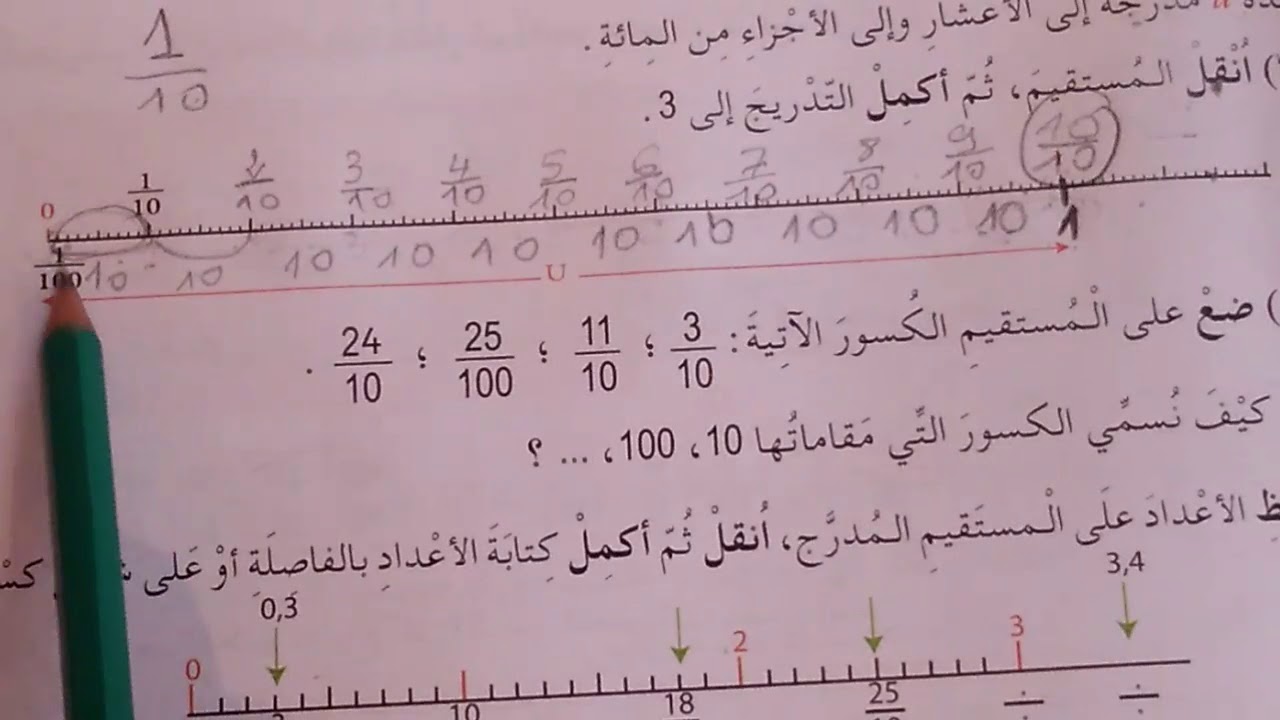 مدرجة إلى الأعْشارِ وإلى الأجْزاءِ مِن المِائةِ .
1/10
) اُنْقلْ المُستقيمَ، ثُمّ أكمِلْ التّدْريجَ إلى 3.
0 1/10 2/10 3/10 4/10 5/10 6/10 7/10 8/10 9/10 10/10
1/100 10 10 10 10 10 10 10 10 10 10 1
U
) ضعْ على الْمُستقيمِ الكُسورَ الآتِيةَ: 3/10 ؛ 11/10 ؛ 25/100 ؛ 24/10 .
كيْفَ نُسمِّي الكسورَ التَّي مَقاماتُها 10، 100، ... ؟
الأعْدادَ علَى الْمستَقيمِ المُدرَّج، اُنقلْ ثُمّ أكمِلْ كِتابَةَ الأعْدادِ بالفاصِلَةِ أوْ عَلى
0,3 3,4
0 2 3
10 18 25